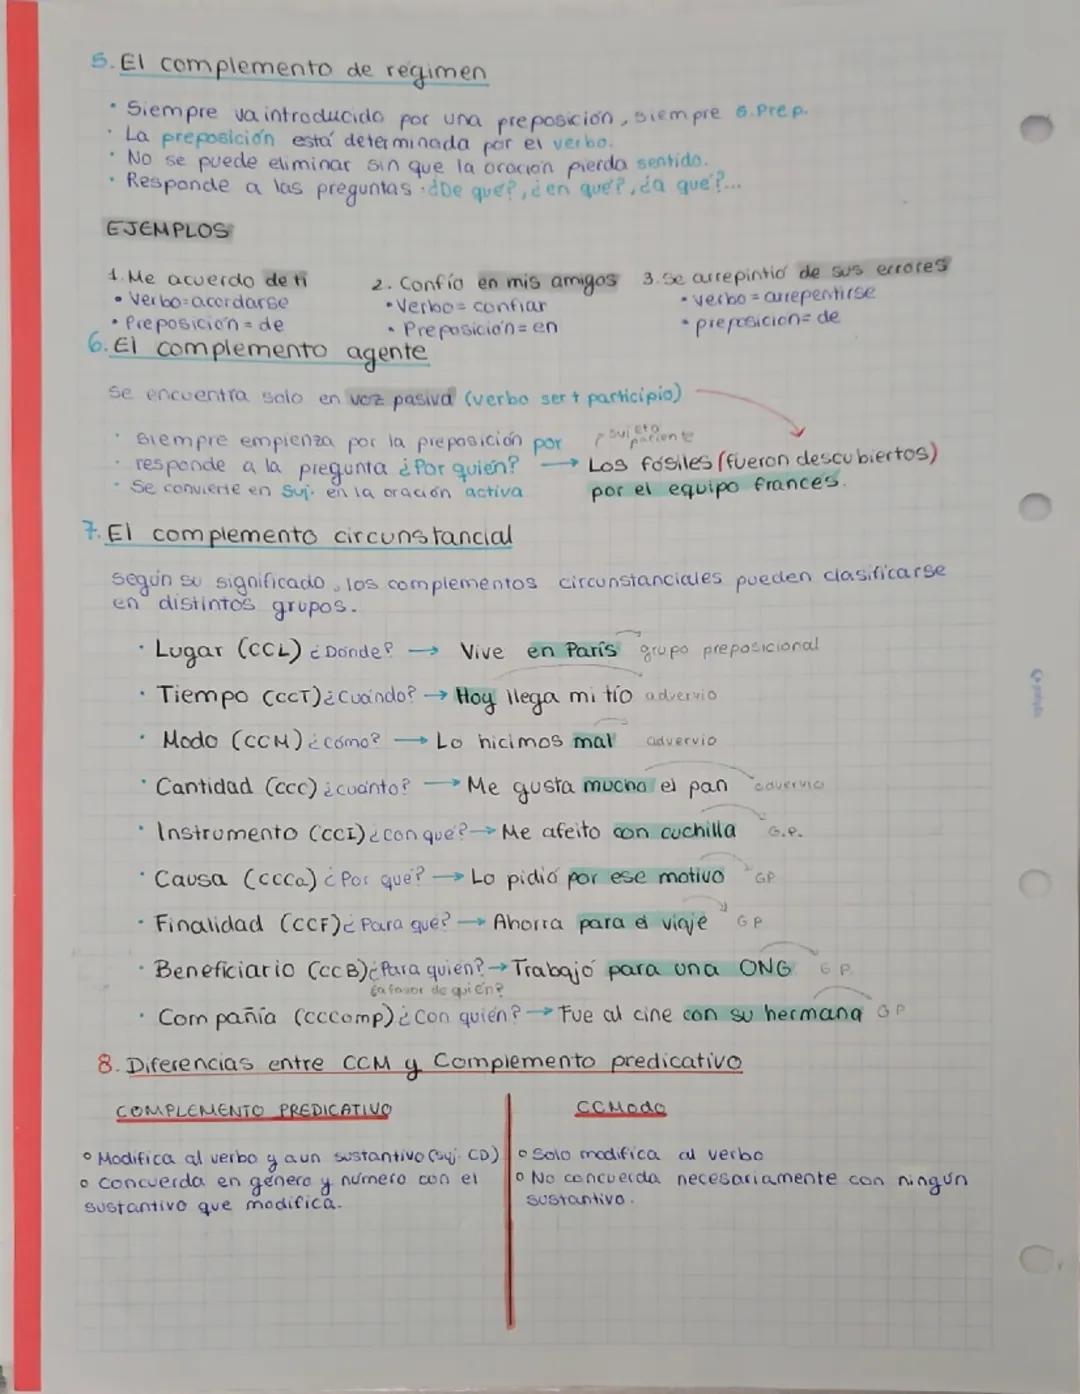 5. El complemento de régimen
· Siempre va introducido por una preposición, siempre G.Prep.
· La preposición está determinada por el verbo.
· No se puede eliminar sin que la oración pierda sentido.
· Responde a las preguntas ¿De qué?, ¿en qué?, ¿a qué?...
EJEMPLOS
1. Me acuerdo de ti
• Verbo=acordarse
• Preposición = de
2. Confío en mis amigos
• Verbo = confiar
• Preposición = en
3. Se arrepintió de sus errores
• verbo = arrepentirse
• preposición= de
6. El complemento agente
Se encuentra solo en voz pasiva (verbo ser + participio)
· Siempre empienza por la preposición por
· responde a la pregunta ¿Por quién? →
· Se convierte en Suj. en la oración activa
sujeto paciente
Los fósiles (fueron descubiertos)
por el equipo francés.
7. El complemento circunstancial
Según su significado, los complementos circunstanciales pueden clasificarse
en distintos grupos.
· Lugar (CCL) ¿Dónde? → Vive en París grupo preposicional
· Tiempo (CCT) ¿Cuándo? → Hoy llega mi tío advervio
· Modo (CCM) ¿cómo? → Lo hicimos mal advervio
· Cantidad (CCC) ¿cuánto? → Me gusta mucho el pan advervio
· Instrumento (CCI) ¿con qué? → Me afeito con cuchilla G.P.
· Causa (CCCa) ¿Por qué? → Lo pidió por ese motivo GP
· Finalidad (CCF) ¿Para qué? → Ahorra para el viaje GP
· Beneficiario (CCB) ¿Para quién? → Trabajó para una ONG G P.
¿a favor de quién?
· Compañía (CCComp) ¿Con quién? → Fue al cine con su hermana GP
8. Diferencias entre CCM y Complemento predicativo
COMPLEMENTO PREDICATIVO
° Modifica al verbo y a un sustantivo (suj. CD)
° Concuerda en género y número con el
sustantivo que modifica.
CCModo
° Solo modifica al verbo
° No concuerda necesariamente con ningún
sustantivo.